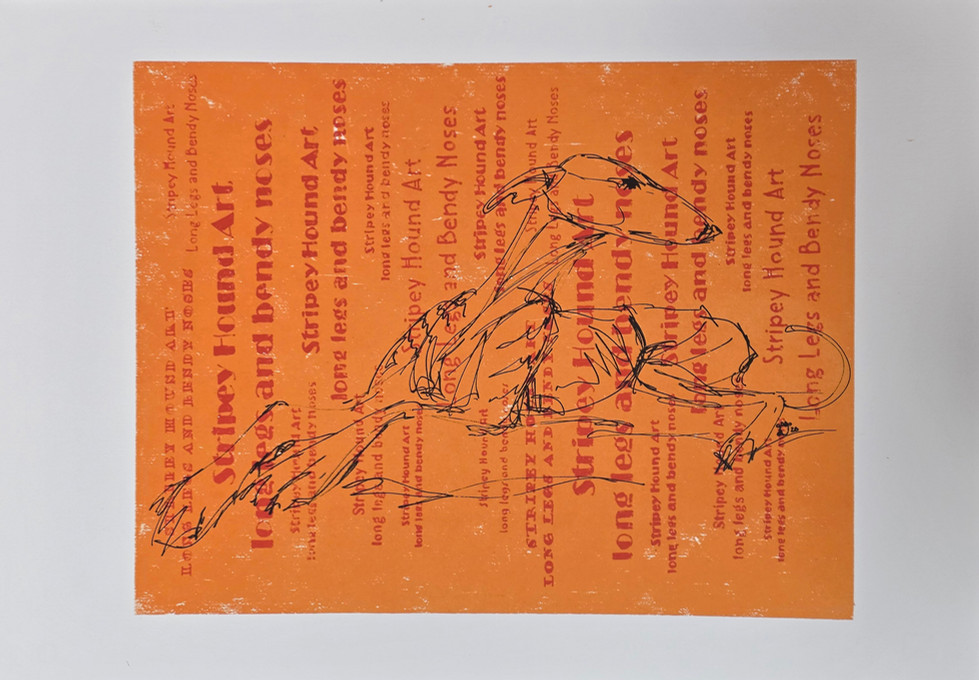 STRIPEY HOUND ART
LONG LEGS AND BENDY NOSES
Stripey Hound Art
Long Legs and Bendy Noses
Stripey Hound Art
long legs and bendy noses
Stripey Hound Art
long legs and bendy noses
Stripey Hound Art
long legs and bendy noses
Stripey Hound Art
long legs and bendy noses
Stripey Hound Art
long legs and bendy noses
Stripey Hound Art
long legs and bendy noses
Stripey Hound Art
Long Legs and Bendy Noses
Stripey Hound Art
long legs and bendy noses
Stripey Hound Art
long legs and bendy noses
STRIPEY HOUND ART
LONG LEGS AND BENDY NOSES
Stripey Hound Art
Long Legs and Bendy Noses
Stripey Hound Art
long legs and bendy noses
Stripey Hound Art
long legs and bendy noses
Stripey Hound Art
long legs and bendy noses
Stripey Hound Art
long legs and bendy noses
Stripey Hound Art
long legs and bendy noses
Stripey Hound Art
long legs and bendy noses
Stripey Hound Art
Long Legs and Bendy Noses